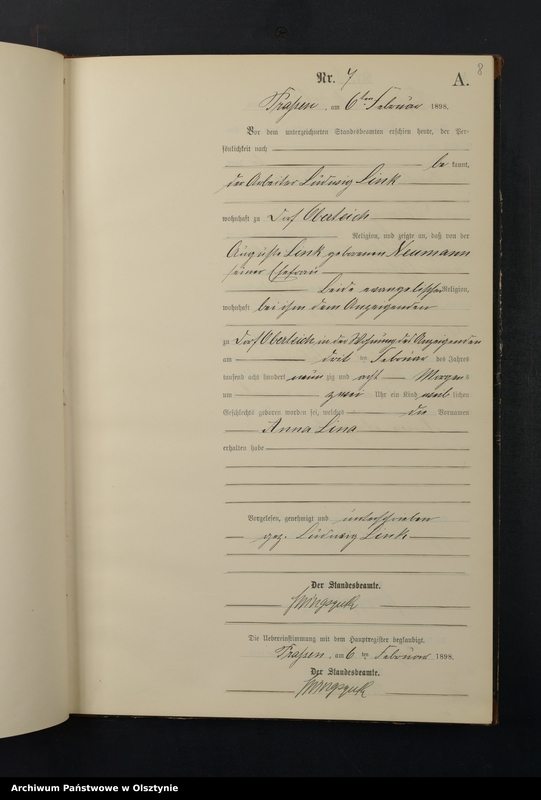 8
Nr. 7 A.
Traßen, am 6ten Februar 1898.
Vor dem unterzeichneten Standesbeamten erschien heute, der Per-
sönlichkeit nach
be kannt,
der Arbeiter Ludwig Link
wohnhaft zu Dorf Oberteich
Religion, und zeigte an, daß von der
Auguste Link geborenen Neumann
seiner Ehefrau
beide evangelischer Religion,
wohnhaft bei ihm dem Anzeigenden
zu Dorf Oberteich in der Wohnung des Anzeigenden
am drit ten Februar des Jahres
tausend acht hundert neun zig und acht Morgens
um zwei Uhr ein Kind weib lichen
Geschlechts geboren worden sei, welches die Vornamen
Anna Lina
erhalten habe
Vorgelesen, genehmigt und unterschrieben
gez. Ludwig Link
Der Standesbeamte.
Die Uebereinstimmung mit dem Hauptregister beglaubigt.
Traßen, am 6 ten Februar 1898.
Der Standesbeamte.
Archiwum Państwowe w Olsztynie